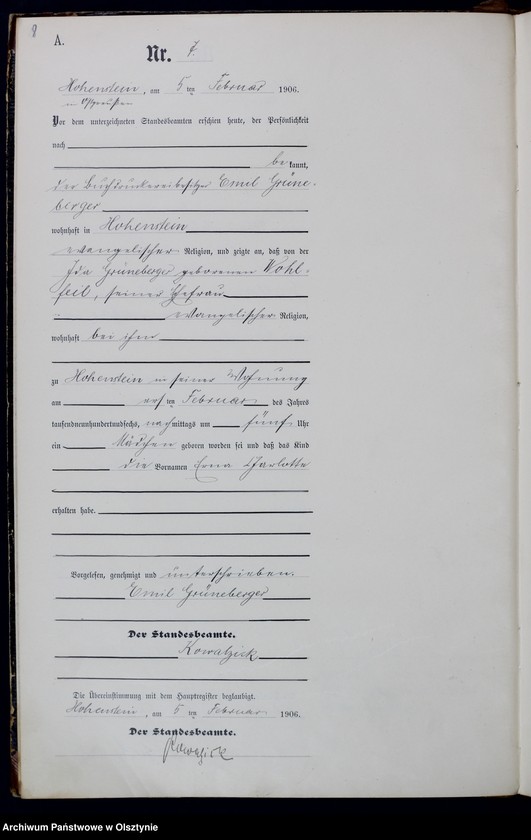 8
A.
Nr. 7.
Hohenstein, am 5 ten Februar 1906.
in Ostpreußen
Vor dem unterzeichneten Standesbeamten erschien heute, der Persönlichkeit
nach
be kannt,
der Buchdruckereibesitzer Emil Grüne-
berger
wohnhaft in Hohenstein
evangelischer Religion, und zeigte an, daß von der
Ida Grüneberger geborenen Wohl-
feil, seiner Ehefrau
evangelischer Religion,
wohnhaft bei ihm
zu Hohenstein in seiner Wohnung
am ersten Februar des Jahres
tausendneunhundertundsechs, nachmittags um fünf Uhr
ein Mädchen geboren worden sei und daß das Kind
die Vornamen Erna Charlotte
erhalten habe.
Vorgelesen, genehmigt und unterschrieben.
Emil Grüneberger
Der Standesbeamte.
Kowalzick
Die Übereinstimmung mit dem Hauptregister beglaubigt.
Hohenstein, am 5 ten Februar 1906.
Der Standesbeamte.
Kowalzick
Archiwum Państwowe w Olsztynie